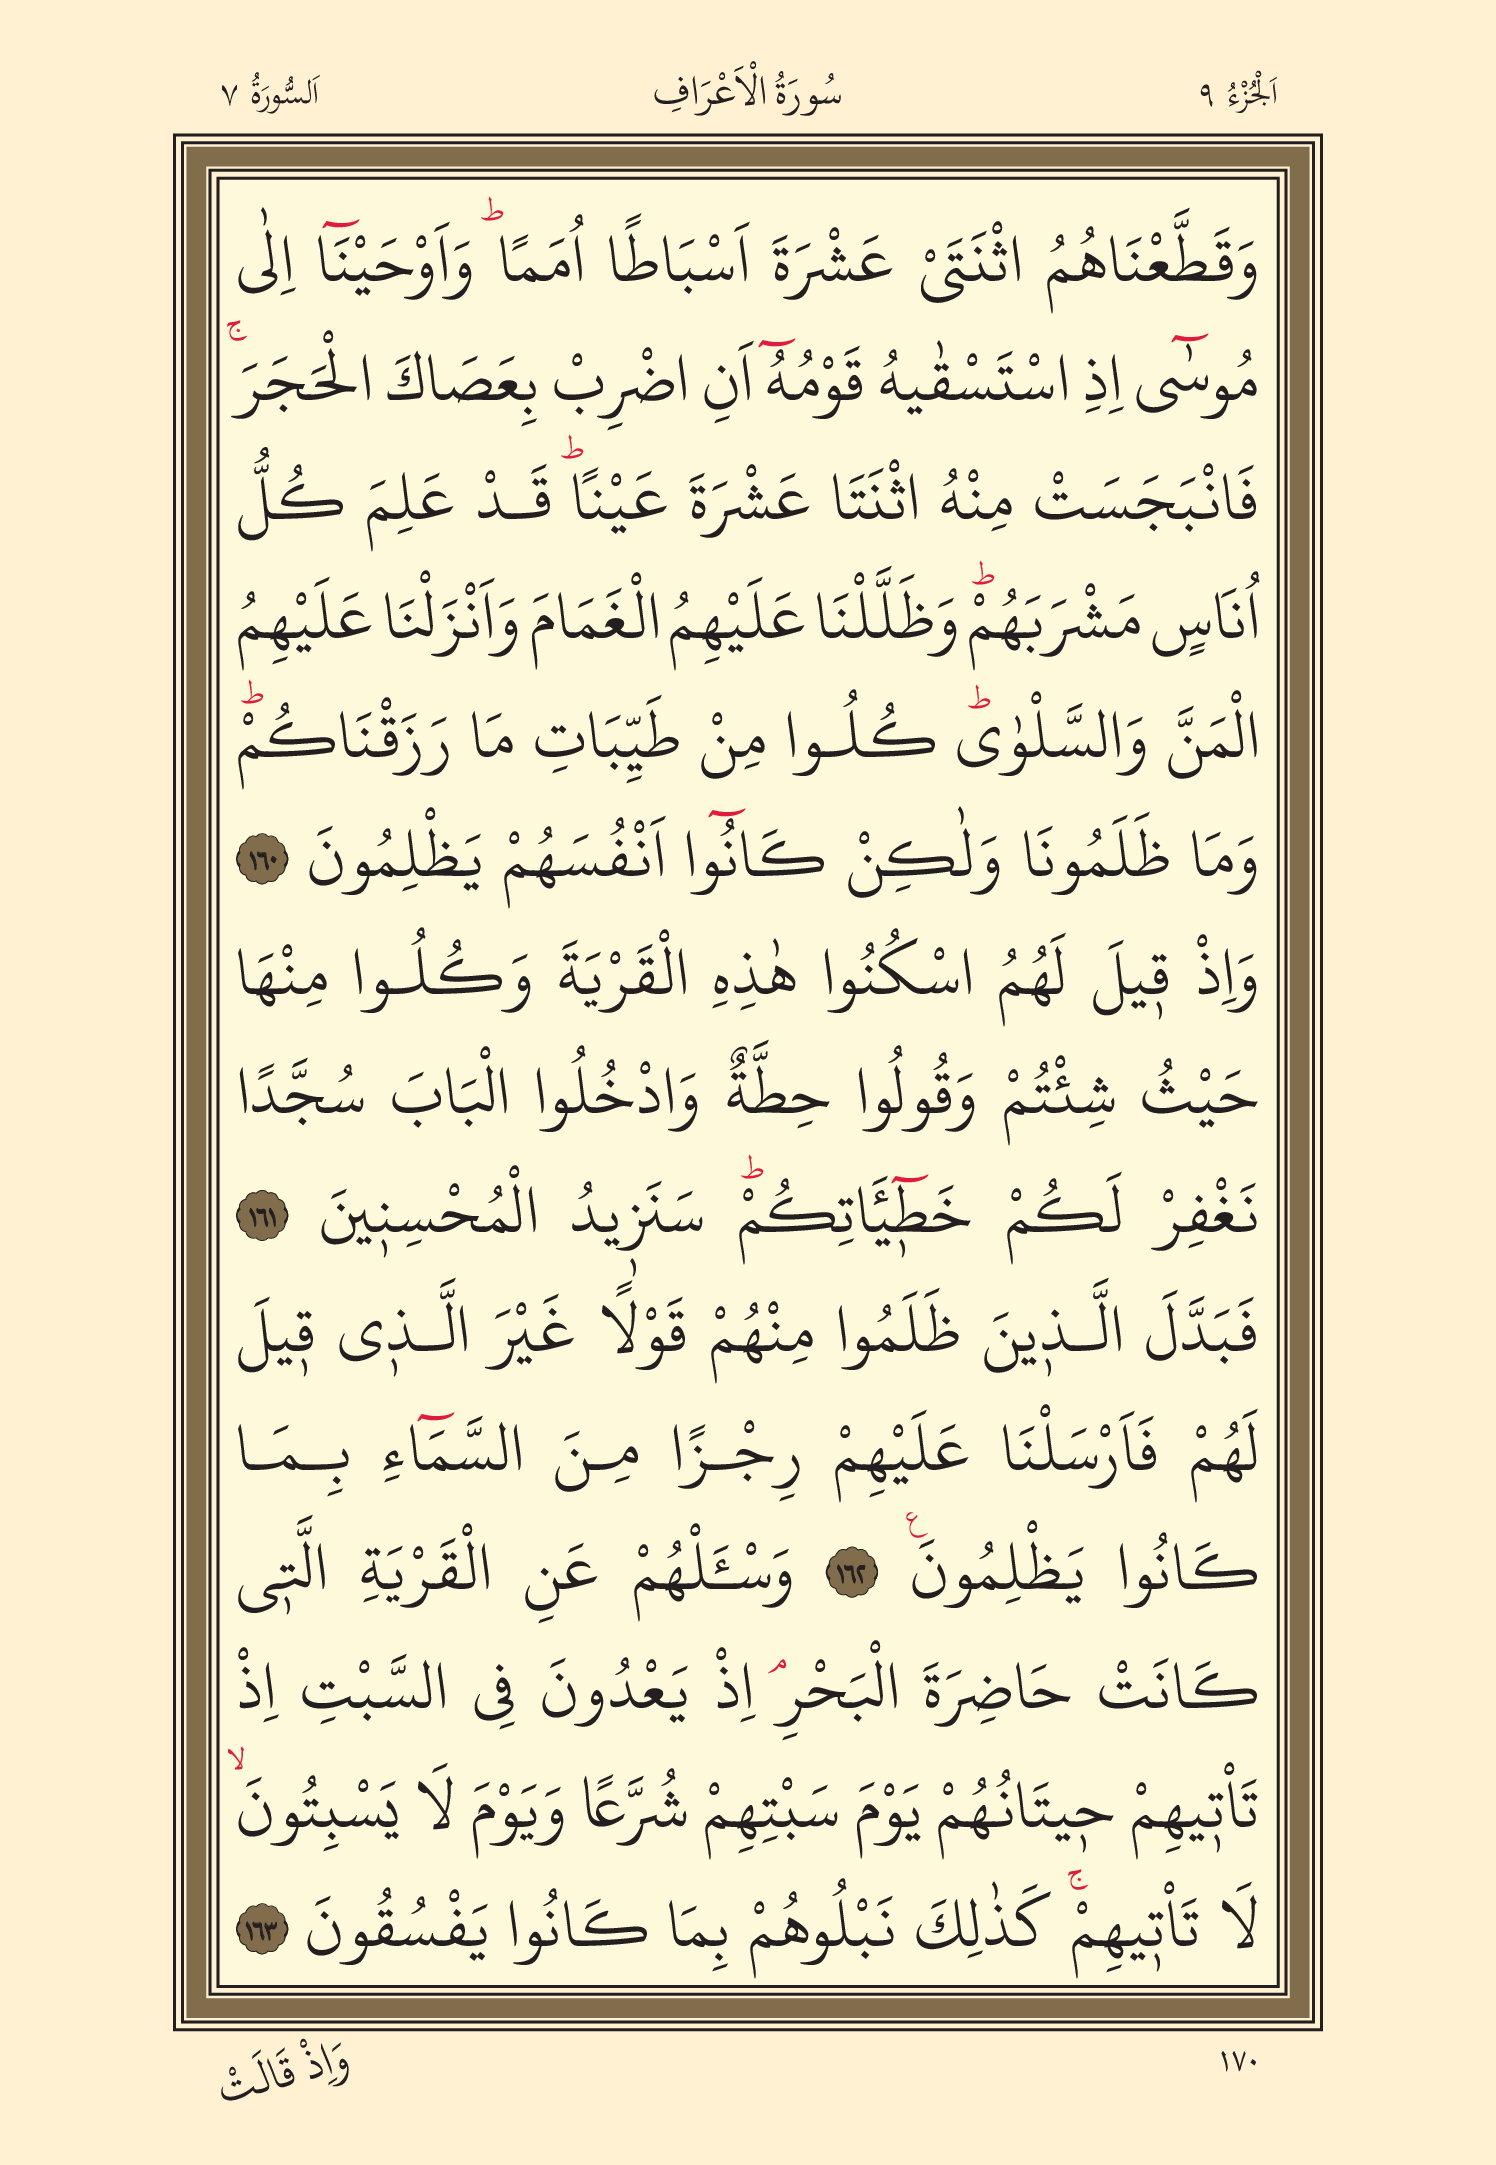 اَلْجُزْءُ ٩
سُورَةُ الْاَعْرَافِ
اَلسُّورَةُ ٧
وَقَطَّعْنَاهُمُ اثْنَتَىْ عَشْرَةَ اَسْبَاطًا اُمَمًاؕ وَاَوْحَيْنَٓا اِلٰى
مُوسٰٓى اِذِ اسْتَسْقٰيهُ قَوْمُهُٓ اَنِ اضْرِبْ بِعَصَاكَ الْحَجَرَۚ
فَانْبَجَسَتْ مِنْهُ اثْنَتَا عَشْرَةَ عَيْنًاؕ قَـدْ عَلِمَ كُلُّ
اُنَاسٍ مَشْرَبَهُمْؕ وَظَلَّلْنَا عَلَيْهِمُ الْغَمَامَ وَاَنْزَلْنَا عَلَيْهِمُ
الْمَنَّ وَالسَّلْوٰىؕ كُلُـوا مِنْ طَيِّبَاتِ مَا رَزَقْنَاكُمْؕ
وَمَا ظَلَمُونَا وَلٰكِنْ كَانُٓوا اَنْفُسَهُمْ يَظْلِمُونَ ١٦٠
وَاِذْ قٖيلَ لَهُمُ اسْكُنُوا هٰذِهِ الْقَرْيَةَ وَكُلُـوا مِنْهَا
حَيْثُ شِئْتُمْ وَقُولُوا حِطَّةٌ وَادْخُلُوا الْبَابَ سُجَّدًا
نَغْفِرْ لَكُمْ خَطٖٓيـَٔاتِكُمْؕ سَنَزٖيدُ الْمُحْسِنٖينَ ١٦١
فَبَدَّلَ الَّـذٖينَ ظَلَمُوا مِنْهُمْ قَوْلًا غَيْرَ الَّـذٖى قٖيلَ
لَهُمْ فَاَرْسَلْنَا عَلَيْهِمْ رِجْـزًا مِـنَ السَّمَٓاءِ بِـمَـا
كَانُوا يَظْلِمُونَࣖ ١٦٢ وَسْـَٔلْهُمْ عَنِ الْقَرْيَةِ الَّتٖى
كَانَتْ حَاضِرَةَ الْبَحْرِۘ اِذْ يَعْدُونَ فِى السَّبْتِ اِذْ
تَاْتٖيهِمْ حٖيتَانُهُمْ يَوْمَ سَبْتِهِمْ شُرَّعًا وَيَوْمَ لَا يَسْبِتُونَۙ
لَا تَاْتٖيهِمْۚ كَذٰلِكَ نَبْلُوهُمْ بِمَا كَانُوا يَفْسُقُونَ ١٦٣
١٧٠
وَاِذْ قَالَتْ